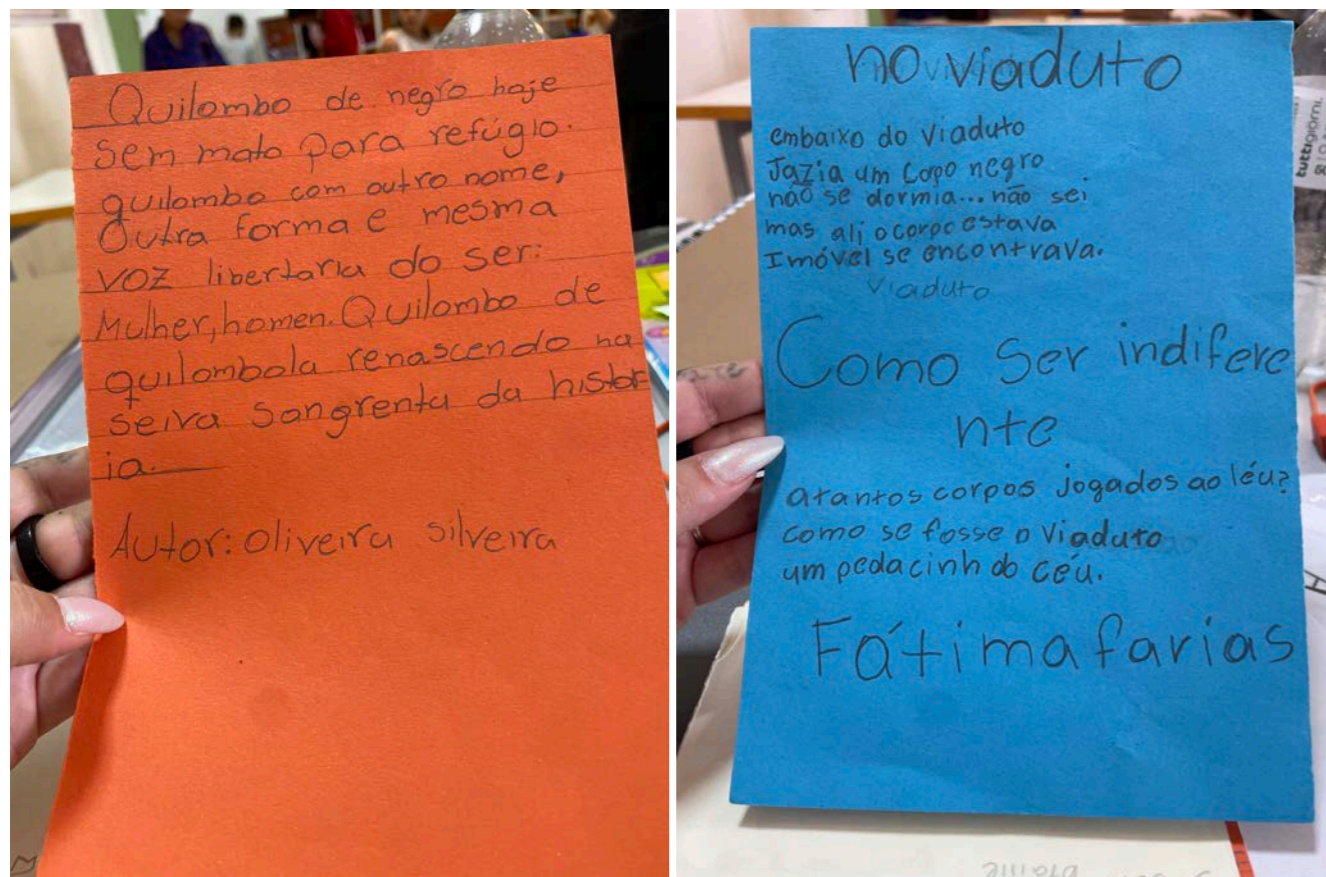 Quilombo de negro hoje
sem mato para refúgio.
quilombo com outro nome,
Outra forma e mesma
voz libertaria do ser:
Mulher, homen. Quilombo de
quilombola renascendo na
seiva sangrenta da histor
ia.
Autor: oliveira silveira
no viaduto
embaixo do viaduto
Jazia um Copo negro
não se dormia... não sei
mas ali o corpo estava
Imóvel se encontrava.
viaduto
Como Ser indifere
nte
a tantos corpos jogados ao léu?
como se fosse o viaduto
um pedacinh do céu.
Fátima farias
tuttigiorni.